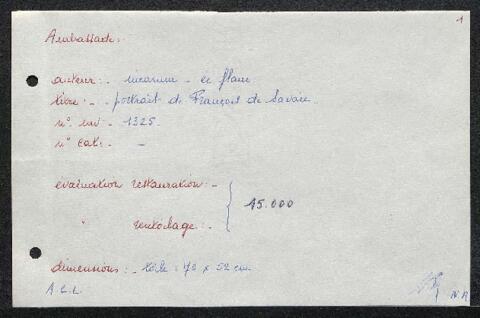 1
Ambassade :
auteur : - inconnu - éc flam
titre : - portrait de François de Savoie.
n° inv - 1325.
n° cat : -
évaluation restauration : -
" rentoilage : - 15.000
dimensions : - toile : 72 x 52 cm.
A.C.L.
N.R